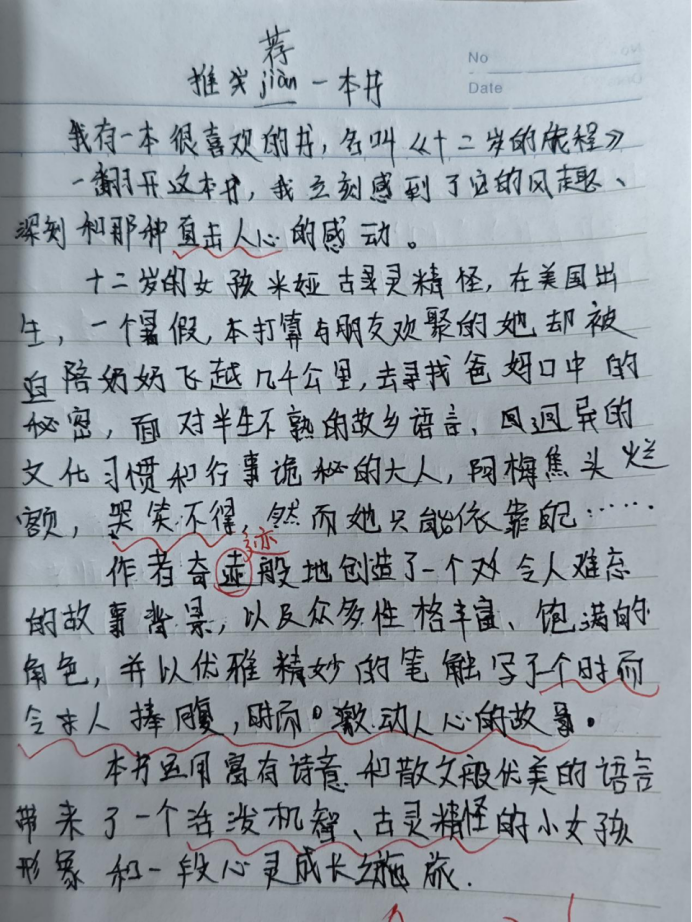 荐
No
推 jiàn 一本书
Date
我有一本很喜欢的书，名叫《十二岁的旅程》
一翻开这本书，我立刻感到了它的风趣、
深刻和那种直击人心的感动。
十二岁的女孩米娅古灵精怪，在美国出
生，一个暑假，本打算与朋友欢聚的她却被
迫陪奶奶飞越几千公里，去寻找爸妈口中的
秘密，面对半生不熟的故乡语言、迥异的
文化习惯和行事诡秘的大人，阿梅焦头烂
额，哭笑不得，然而她只能依靠自己……
迹
作者奇迹般地创造了一个令人难忘
的故事背景，以及众多性格丰富、饱满的
角色，并以优雅精妙的笔触写了个时而
令人捧腹，时而激动人心的故事。
本书运用富有诗意和散文般优美的语言
带来了一个活泼机智、古灵精怪的小女孩
形象和一段心灵成长之旅.